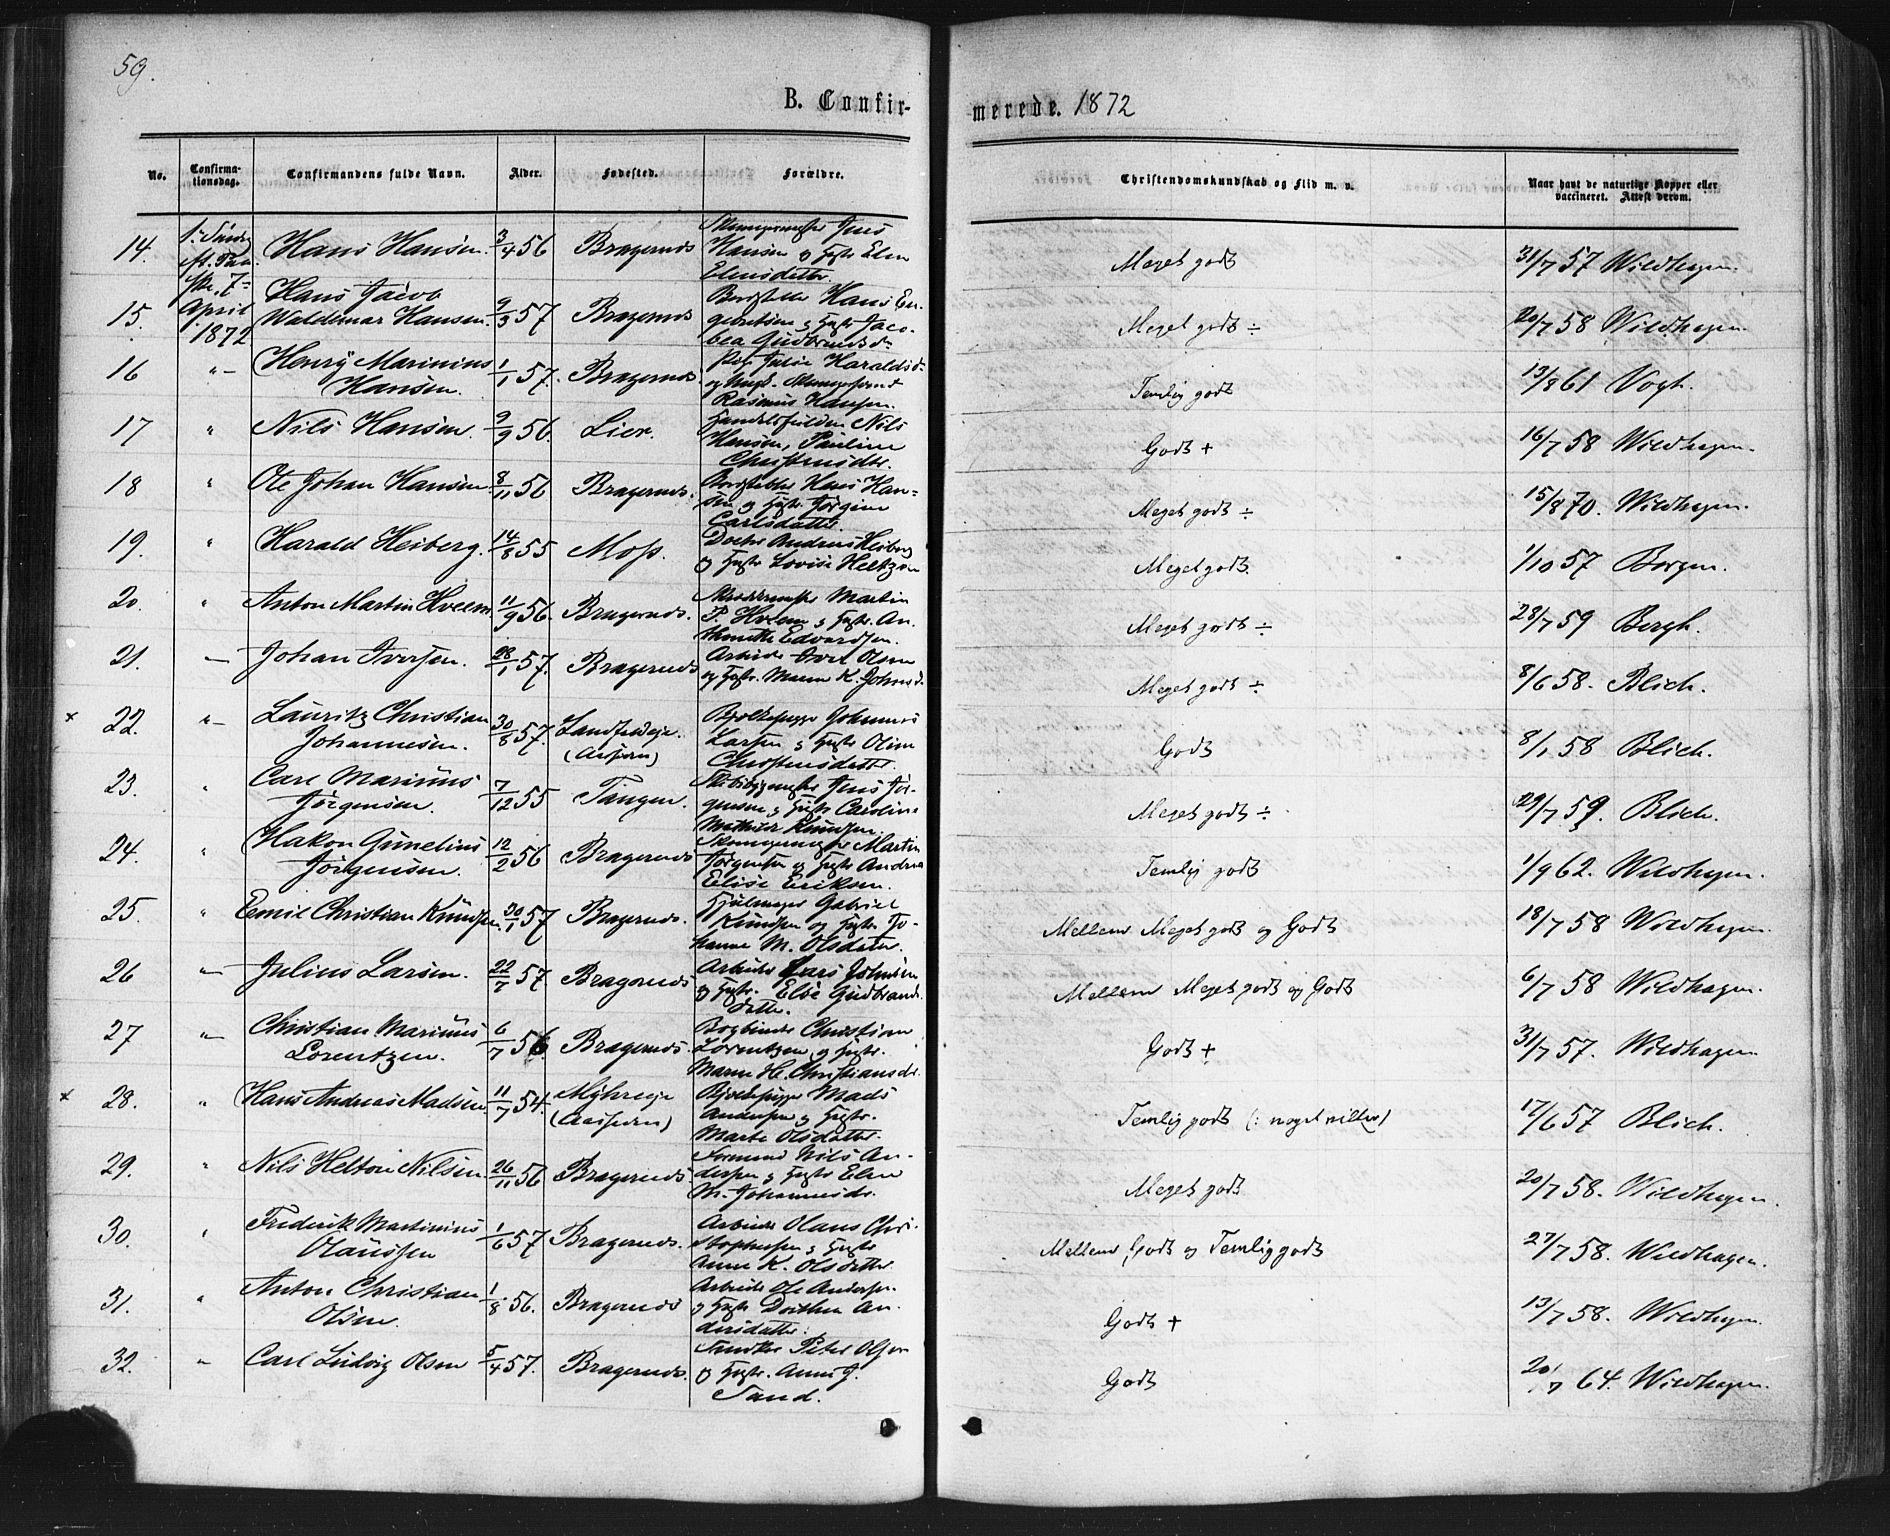 59.
B. Confir-
merede. 1872
No. Confirma-tionsdag. Confirmandens fulde Navn. Alder. Fødested. Forældre. Christendomskundskab og Flid m. v. Naar havt de naturlige Kopper eller vaccineret. Attest derom.
14. 1. Søndag eft. Paaske 7- April 1872 Hans Hansen. 3/4 56 Bragernes Jens Hansen og Hustr Elen Elensdatter Meget godt 31/7 57 Wildhagen.
15. Hans Jacob Waldemar Hansen. 9/3 57 Bragernes Hans En- og Hustr Jaco-bea Gudbrandsd. Meget godt ÷ 20/7 58 Wildhagen.
16 "- Henry Marinius Hansen. 1/1 57. Bragernes Pige Julie Haraldsd. og Rasmus Hansen. Temlig godt 13/8 61 Vogt.
17 " Nils Hansen. 9/9 56. Lier. Nils Hansen, Pauline Christensdtr. Godt + 16/7 58 Wildhagen.
18 " Ole Johan Hansen 8/11 56 Bragernes. Hans Han-sen og Hustr Jørgine Carlsdatter. Meget godt ÷ 15/8 70. Wildhagen.
19. " Harald Heiberg. 14/8 55 Moss. Doctor Andreas Heiberg og Hustr Lovise Heltzen Meget godt 1/10 57 Borgen.
20. " Anton Martin Hveem 11/9 56. Bragernes. Martin P. Hveem og Hustr. An-thonette Edvardsen. Meget godt ÷ 28/7 59 Bergh.
21. - Johan Iversen. 28/1 57. Bragernes Arbeider Iver Olsen og Hustr. Maren K. Johnsd. Meget godt ÷ 8/6 58. Blich.
× 22. "- Lauritz Christian Johannesen. 30/8 57. Landfaldeje. (Asspern) Johannes Larsen og Hustr Oline Christensdatter. Godt 8/1 58 Blich.
23. " Carl Marinus Jörgensen. 7/12 55 Tangen. Skibsbygmester Jens Jör-gensen og Hustr Caroline Mathilde Knudsen. Meget godt ÷ 29/7 59. Blich.
24. " Hakon Gunelius Jörgensen. 12/2 56 Bragernes Skomagermester Martin Jørgensen og Hustr Andrea Elise Eriksen. Temlig godt 1/9 62. Wildhagen.
25. " Emil Christian Knudsen. 30/1 57 Bragernes. Hjulmager Gabriel Knudsen og Hustr Jo-hanne M. Olsdatter. Mellem Meget godt og Godt 18/7 58 Wildhagen.
26 "- Julius Larsen. 22/7 57. Bragernes Arbeider Lars Johnsen og Hustr. Else Gudbrands-datter. Mellem Meget godt og Godt 6/7 58 Wildhagen.
27 "- Christian Marinus Lorentzen. 6/7 56 Bragernes. Bogbinder Christian Lorentzen og Hustr. Maren H. Christiansdr. Godt + 31/7 57. Wildhagen
× 28. " Hans Andreas Madsen 11/7 54. Myhreeje (Asspern) Mads Andersen og Hustr. Marte Olsdatter. Temlig godt (: noget vilter) 17/6 57 Blich.
29. " Nils Helton Nilsen. 26/11 56 Bragernes Formand Nils An-dersen og Hustr Elen M. Johannesdr. Meget godt 20/7 58. Wildhagen.
30. " Frederik Martinius Olaussen 1/6 57 Bragernes. Arbeider Olaus Chri-stophersen og Hustr Anne K. Olsdatter. Mellem Godt og Temlig godt 27/7 58. Wildhagen.
31. " Anton Christian Olsen. 1/8 56. Bragernes Arbeider Ole Andersen og Hustr Dorthea An-dersdatter. Godt + 13/7 58. Wildhagen.
32. " Carl Ludvig Olsen 5/4 57. Bragernes. Peter Olsen og Hustr. Anne J. Sand. Godt 20/7 64. Wildhagen.